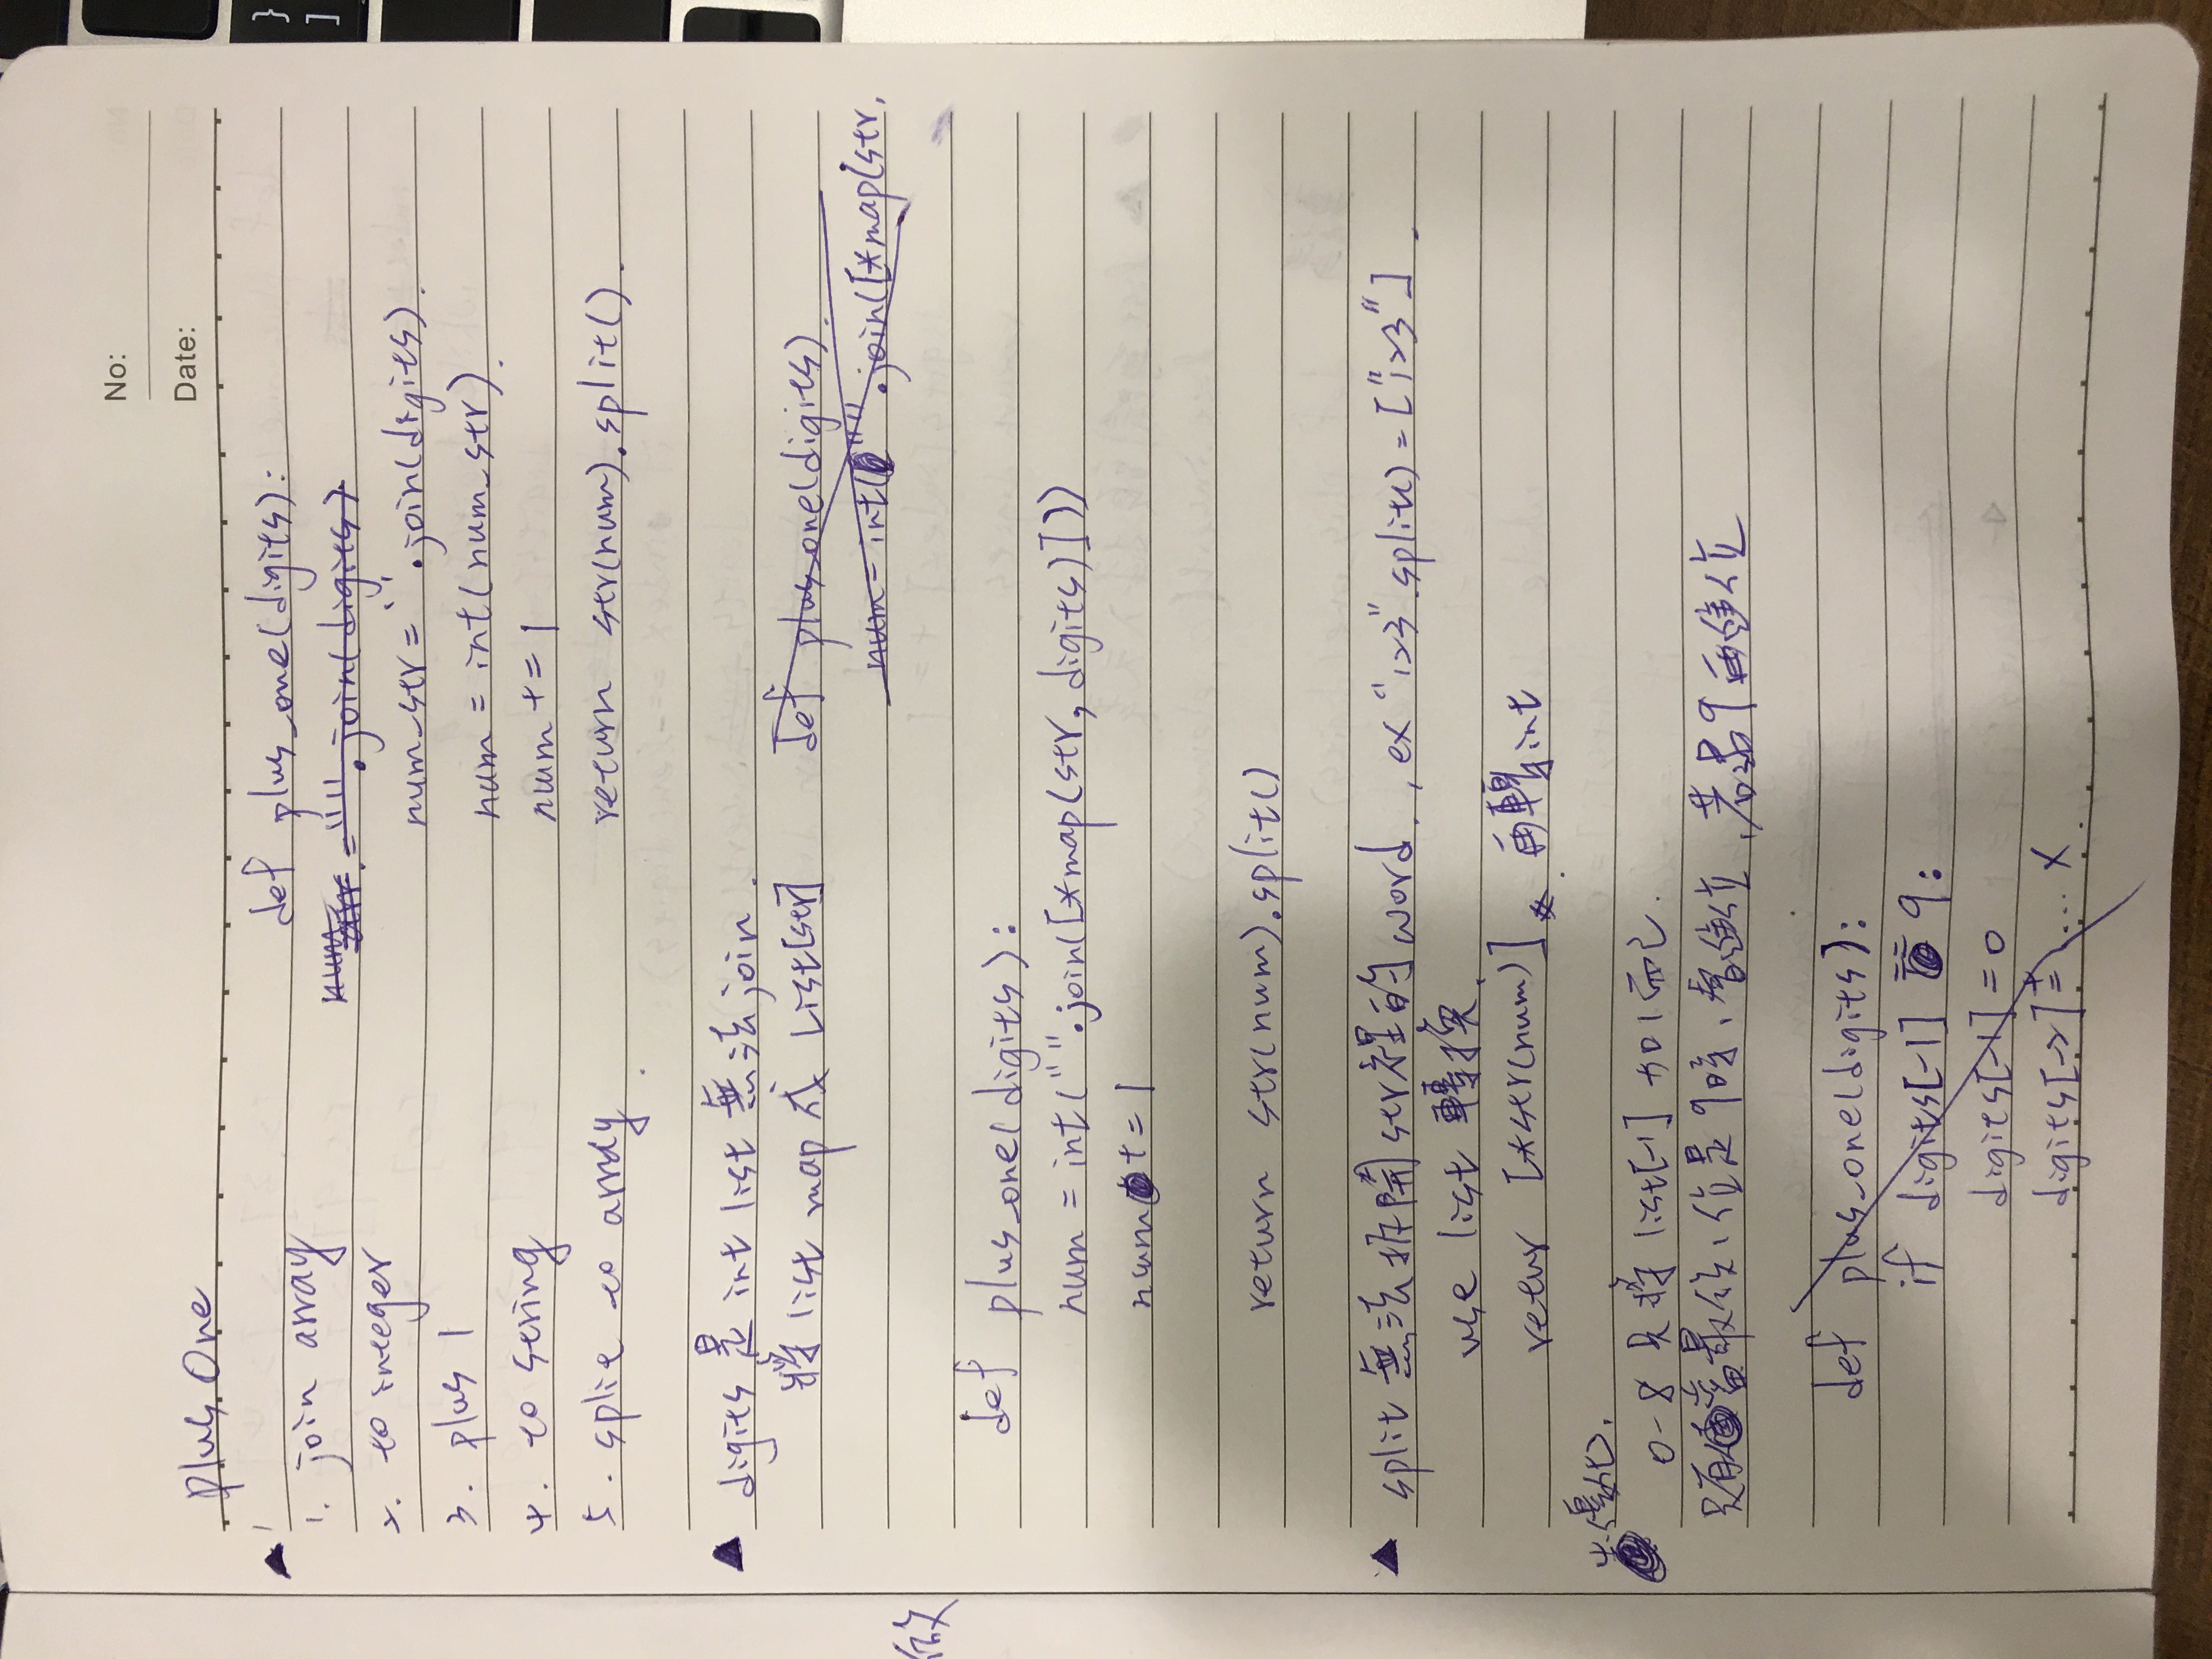 No:
Date:
Plus One
1. join array
2. to integer
3. plus 1
4. to string
5. split to array.
def plus_one(digits):
num = "".join(digits)
num_str = "".join(digits)
num = int(num_str)
num += 1
return str(num).split().
digits 是 int list 無法 join.
將 list map 成 List[str]
def plus_one(digits)
num = int("".join([*map(str,
def plus_one(digits):
num = int("".join([*map(str, digits)]))
num += 1
return str(num).split()
split 無法拆開 str 裡的 word., ex "123".split() = ["123"].
use list 轉換.
retur [*str(num)] 再轉 int
優化.
0-8 只將 list[-1] 加1而已.
只有當最後1位是9時、會進位,若是9再進位
def plus_one(digits):
if digits[-1] == 9:
digits[-1] = 0
digits[-2] += .... X
}
]
做